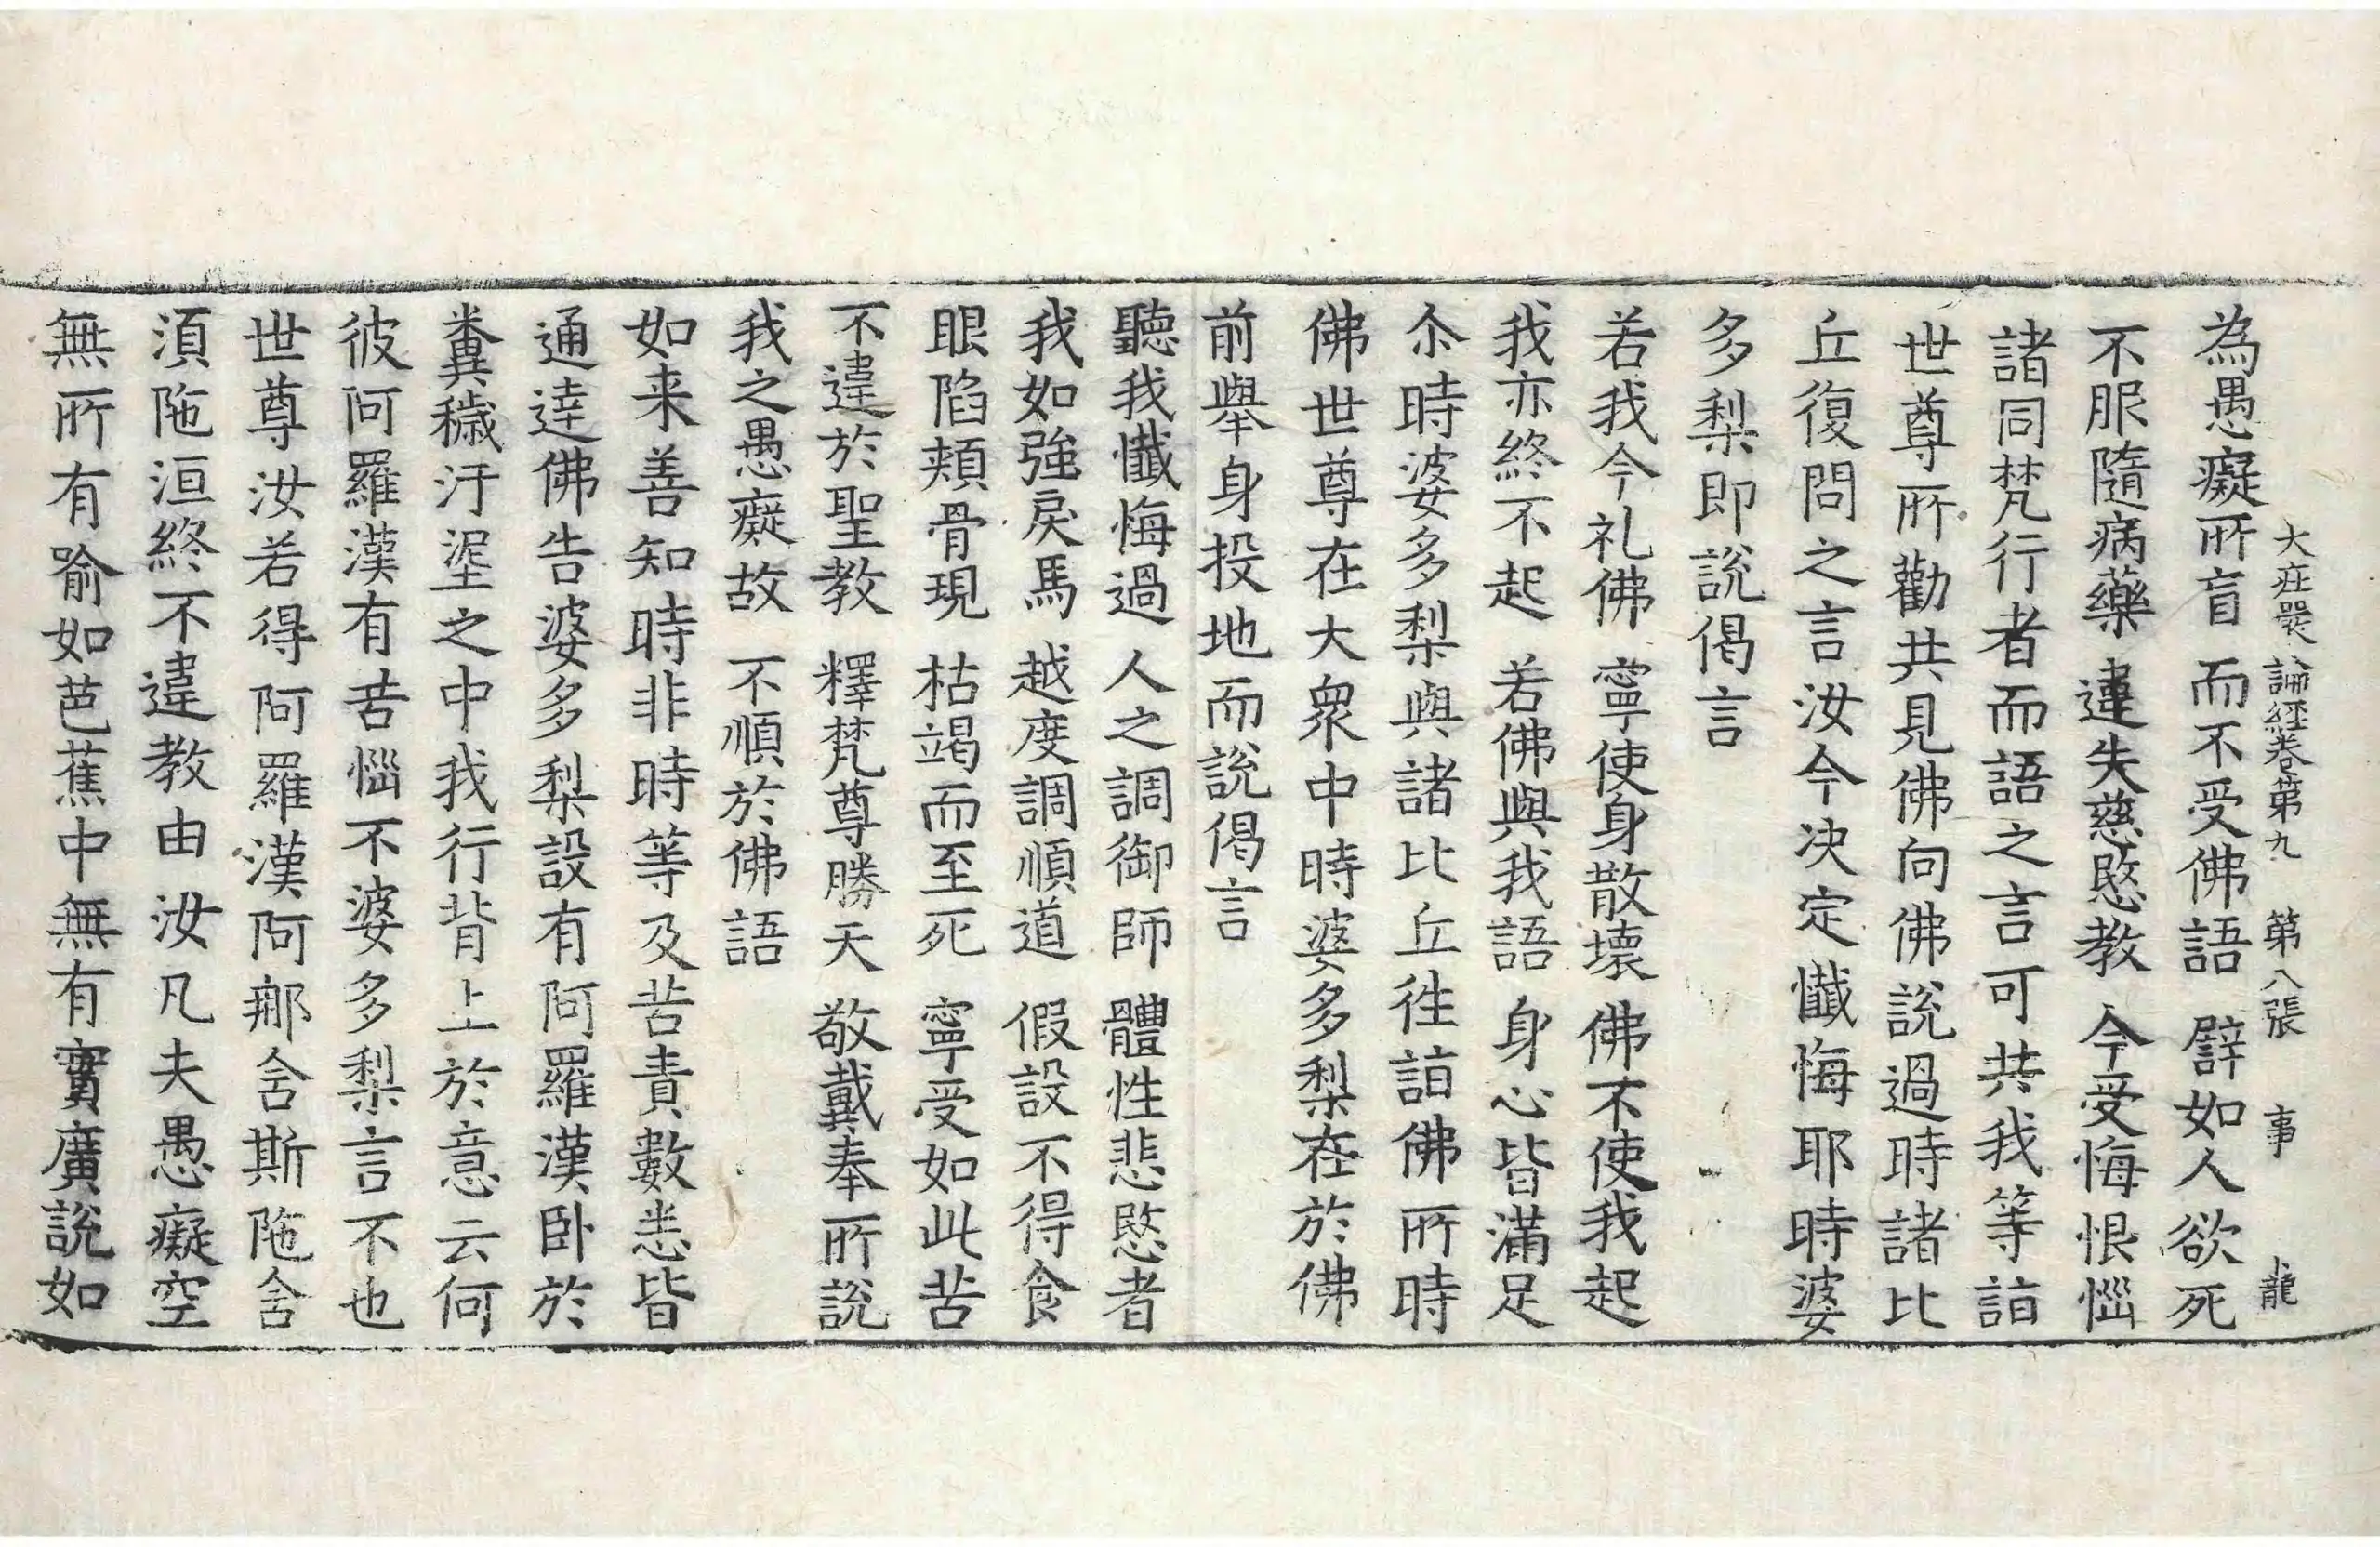 大庄嚴論経卷第九 第八張 事 龍
為愚癡所盲 而不受佛語 譬如人欲死
不服隨病藥 違失慈愍教 今受悔恨惱
諸同梵行者而語之言可共我等詣
世尊所勸共見佛向佛說過時諸比
丘復問之言汝今決定懺悔耶時婆
多梨即說偈言
若我今礼佛 寧使身散壞 佛不使我起
我亦終不起 若佛與我語 身心皆滿足
尒時婆多梨與諸比丘徃詣佛所時
佛世尊在大衆中時婆多梨在於佛
前舉身投地而說偈言
聽我懺悔過 人之調御師 體性悲愍者
我如強戾馬 越度調順道 假設不得食
眼陷頰骨現 枯竭而至死 寧受如此苦
不違於聖教 釋梵尊勝天 敬戴奉所說
我之愚癡故 不順於佛語
如来善知時非時等及苦責數悉皆
通達佛告婆多梨設有阿羅漢卧於
糞穢汙埿之中我行背上於意云何
彼阿羅漢有苦惱不婆多梨言不也
世尊汝若得阿羅漢阿那含斯陁含
湏陁洹終不違教由汝凡夫愚癡空
無所有喻如芭蕉中無有實廣說如